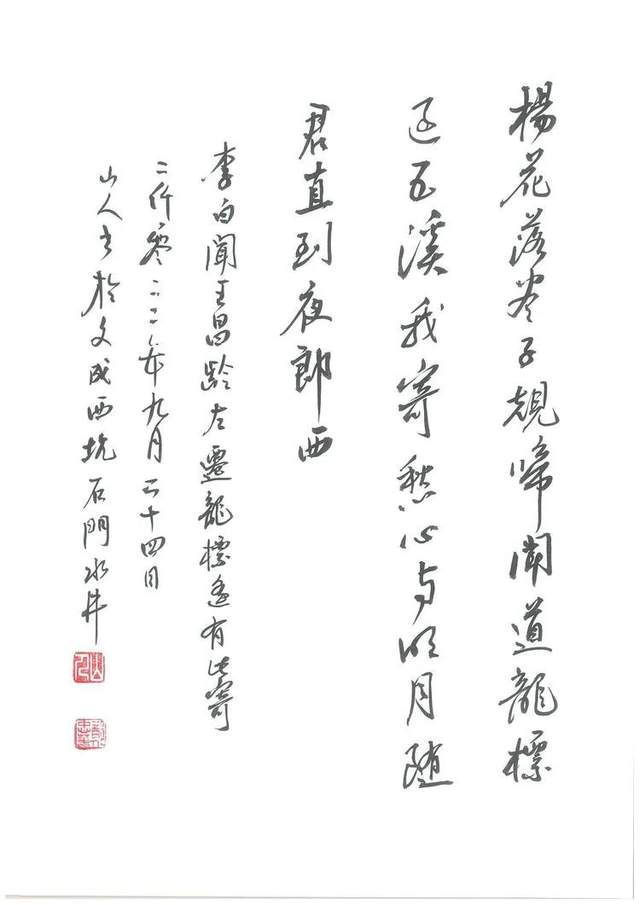 楊花落盡子規啼聞道龍標
過五溪我寄愁心与明月随
君直到夜郎西
李白聞王昌齡左遷龍標遙有此寄
二仟零二二年九月二十四日
山人书於文成西坑石門水井
山人